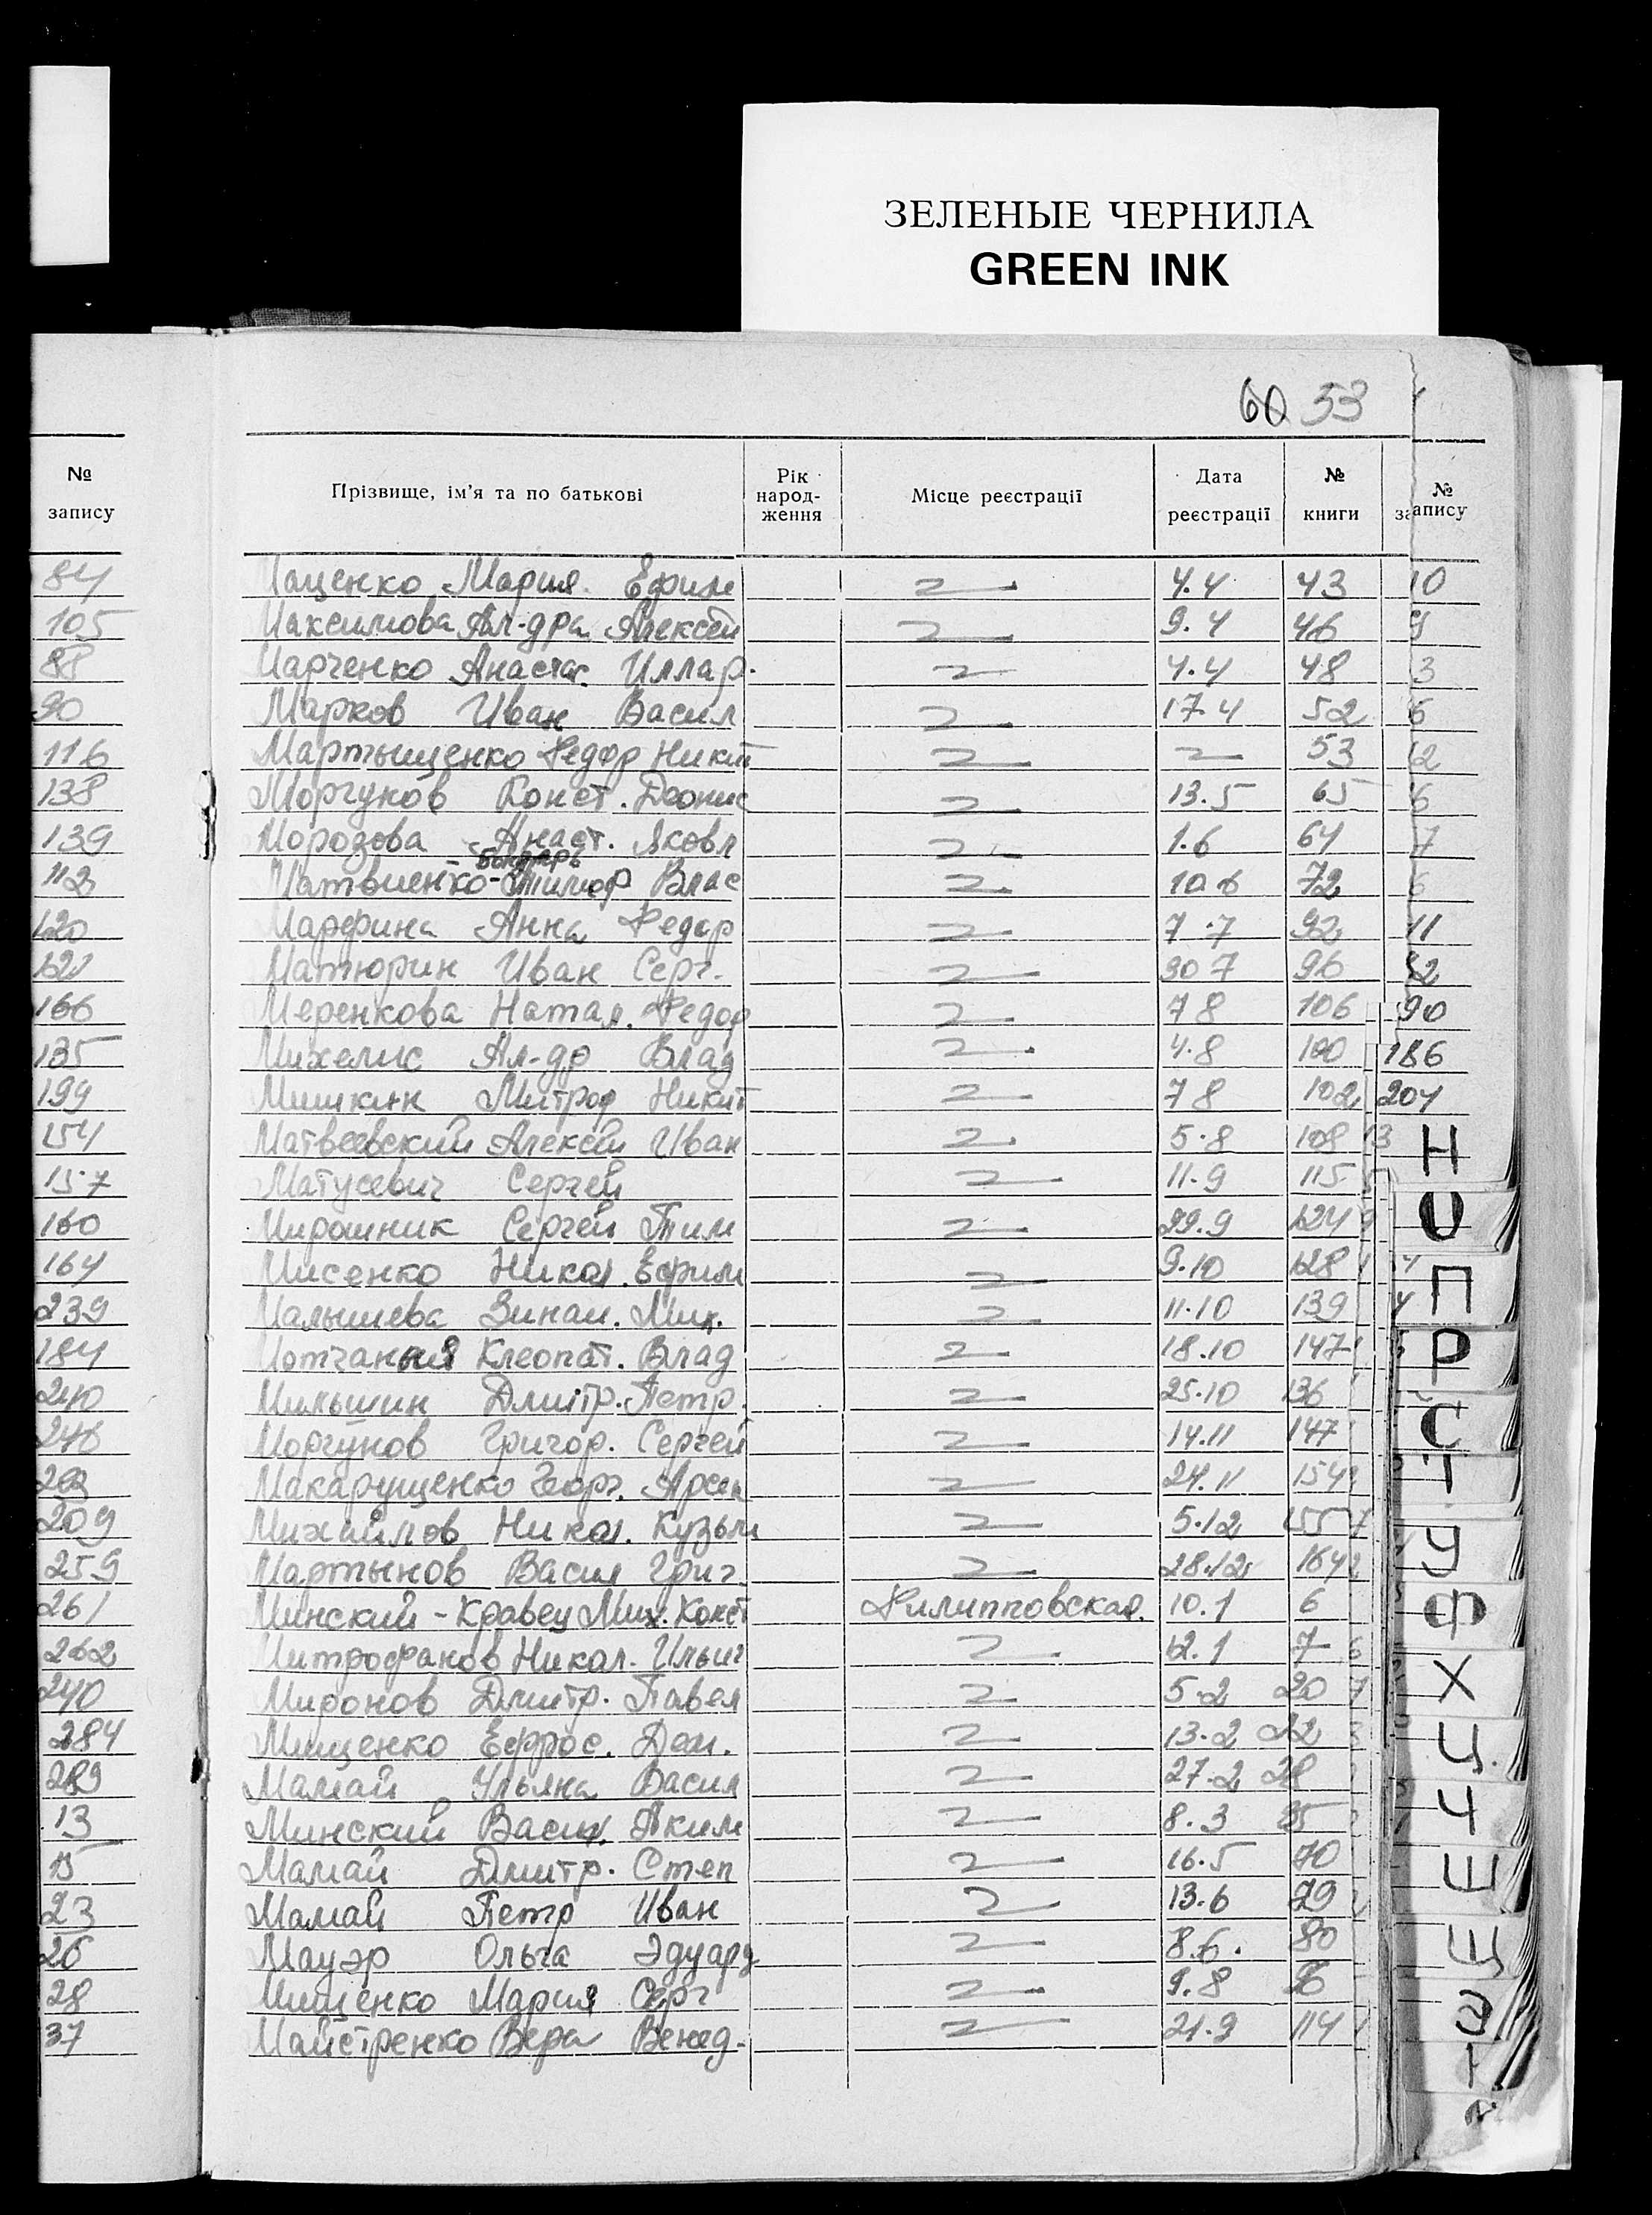 ЗЕЛЕНЫЕ ЧЕРНИЛА
GREEN INK
60 53
№ запису Прізвище, ім'я та по батькові Рік народ-ження Місце реєстрації Дата реєстрації № книги № запису
84 Маценко Мария Ефим 4.4 43 10
105 Максимова Ал-дра Алексей 9.4 46 9
88 Марченко Анастас. Иллар. 4.4 48 3
90 Марков Иван Васил 17.4 52 6
116 Мартыщенко Федор Никит 53 2
138 Моргунов Конст. Деонис 13.5 65 6
139 Морозова Анаст. Яковл 1.6 64 7
Бондарь
112 Матвиенко- Тимоф Влас 10 6 72 6
120 Марфина Анна Федор 7.7 92 11
121 Матюрин Иван Серг. 30 7 96
166 Меренкова Натал. Федор 7 8 106 90
135 Михелис Ал-др Влад 4.8 100 186
199 Мишкин Митроф Никит 7 8 102 204
154 Матвеевский Алексей Иван 5.8 108 13
157 Матусевич Сергей 11.9 115
160 Мирошник Сергей Тим 29.9 124
164 Мисенко Никол. Ефим 9.10 128
239 Малышева Зинаи. Мих. 11.10 139
184 Клеопат. Влад 18.10 147
240 Мильшин Дмитр. Петр. 25.10 136
246 Моргунов Григор. Сергей 14.11 147
Макарущенко Георг. Арсен 24.11 154
209 Михайлов Никол. Кузьм 5.12 155
259 Мартынов Васил Григ. 28.12 164
261 Минский-Кравец Мих. Конст Филипповская. 10.1 6
262 Митрофанов Никол. Ильич 12.1 7
240 Миронов Дмитр. Павел 5.2 20
284 Мищенко Ефрос. Дем. 13.2 22
289 Мамай Ульяна Васил 27.2 28
13 Минский Васил. Аким 8.3 35
15 Мамай Дмитр. Степ 16.5 70
23 Мамай Петр Иван 13.6 79
26 Мауэр Ольга Эдуард 8.6. 80
28 Мищенко Мария Серг 9.8 96
37 Майстренко Вера Венед. 21.9 114
Н
О
П
Р
С
Т
У
Ф
Х
Ц.
Ч
Ш
Щ
Э